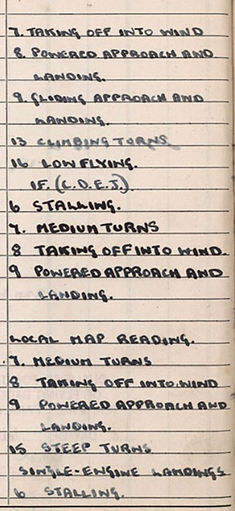 7. TAKING OFF INTO WIND
8. POWERED APPROACH AND
LANDING.
9. GLIDING APPROACH AND
LANDING.
13 CLIMBING TURNS
16 LOW FLYING.
I.F. (C.D.E.J.)
6 STALLING.
7. MEDIUM TURNS
8 TAKING OFF INTO WIND.
9 POWERED APPROACH AND
LANDING.
LOCAL MAP READING.
7. MEDIUM TURNS
8 TAKING OFF INTO WIND
9 POWERED APPROACH AND
LANDING.
15 STEEP TURNS
SINGLE-ENGINE LANDINGS
6 STALLING.